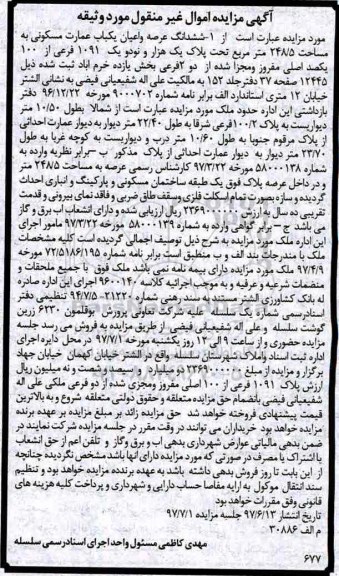 آگهی مزایده اموال غیر منقول مورد وثیقه
مورد مزایده عبارت است از ۱-ششدانگ عرصه واعیان یکباب عمارت مسکونی به
مساحت ۲۴۸/۵ متر مربع تحت پلاک یک هزار و نودو یک ۱۰۹۱ فرعی از ۱۰۰
یکصد اصلی مفروز ومجزا شده از دو ۲فرعی بخش یازده خرم اباد ثبت شده ذیل
۱۲۴۴۵ صفحه ۳۷ دفترجلد ۱۵۲ به مالکیت علی اله شفیعیانی فیضی به نشانی الشتر
خیابان ۱۲ متری استاندارد الف برابر نامه شماره ۹۰۰۰۷۰۲ مورخه ۹۶/۱۲/۲۲ دفتر
بازداشتی این اداره حدود ملک مورد مزایده عبارت است از شمالا بطول ۱۰/۵۰ متر
دیواریست به پلاک ۱۰۰/۲فرعی شرقا به طول ۲۲/۴۰ متر دیوار به دیوار عمارت احداثی
از پلاک مرقوم جنوبا به طول ۱۰/۶۰ متر درب و دیواریست به کوچه غربا به طول
۲۳/۷۰ متر دیوار به دیوار عمارت احداثی از پلاک مذکور ب -برابر نظریه وارده به
شماره ۵۸۰۰۰۱۳۸ مورخه ۹۷/۳/۲۲ کارشناس رسمی عرصه به مساحت ۲۴۸/۵ متر
و در داخل عرصه پلاک فوق یک طبقه ساختمان مسکونی و پارکینگ و انباری احداث
گردیده و سازه بصورت تمام اسکلت فلزی وسقف طاق ضربی و فاقد نمای بیرونی و قدمت
تقریبی ده سال به ارزش ۲۳۶۹۰۰۰۰۰۰ ریال ارزیابی شده و دارای انشعاب اب برق و گاز
می باشد ج- برابر گواهی وارده به شماره ۵۸۰۰۰۱۳۹ مورخه ۹۷/۳/۲۲ مامور اجرای
این اداره ملک مورد مزایده به شرح ذیل توصیف اجمالی گردیده است کلیه مشخصات
ملک با مندرجات بند الف و ب منطبق است برابر نامه شماره ۷۲/۵۱۸۶/۱۹۵ مورخه
۹۷/۴/۹ ملک مورد مزایده دارای بیمه نامه نمی باشد ملک فوق با جمیع ملحقات و
منضمات شرعیه و عرفیه و به موجب اجرائیه کلاسه ۹۶۰۰۱۴۰ اجرای این اداره صادره
له بانک کشاورزی الشتر مستند به سند رهنی شماره ۲۱۲۲۰-۹۴/۷/۵ تنظیمی دفتر
اسنادرسمی شماره یک سلسله علیه شرکت تعاونی پرورش بوقلمون ۶۲۳۰ زرین
گوشت سلسله و علی اله شفیعیانی فیضی از طریق مزایده به فروش می رسد جلسه
مزایده حضوری و از ساعت ۹ الی ۱۲ روز یکشنبه مورخه ۹۷/۷/۱ در محل دایره اجرای
اداره ثبت اسناد واملاک شهرستان سلسله واقع در الشتر خیابان کهمان خیابان جهاد
برگزار و مزایده از مبلغ ۲۳۶۹۰۰۰۰۰۰ دو میلیارد و سیصد و شصت و نه میلیون ریال
ارزش پلاک ۱۰۹۱ فرعی از ۱۰۰ اصلی مفروز ومجزی شده از دو فرعی ملکی علی اله
شفیعیانی فیضی بانضمام حق مزایده متعلقه و حقوق دولتی متعلقه شروع و به بالاترین
قیمت پیشنهادی فروخته خواهد شد حق مزایده زائد بر مبلغ مزایده بر عهده برنده
مزایده خواهد بود خریداران می توانند در وقت مقرر در جلسه مزایده شرکت نمایند در
ضمن بدهی مالیاتی عوارض شهرداری بدهی اب و برق وگاز و تلفن اعم از حق انشعاب
یا اشتراک یا مصرف در صورتی که مورد مزایده دارای انها باشد مشخص نگردیده چنانچه
از این بابت تا روز فروش بدهی داشته باشد به عهده برنده مزایده خواهد بود و تنظیم
سند انتقال موکول به ارایه مفاصا حساب دارایی و شهرداری و پرداخت کلیه هزینه های
قانونی وفق مقررات خواهد بود
تاریخ انتشار ۹۷/۶/۱۳ جلسه مزایده ۹۷/۷/۱
م الف ۳۰۸۸۶
مهدی کاظمی مسئول واحد اجرای اسنادرسمی سلسله
۶۷۷